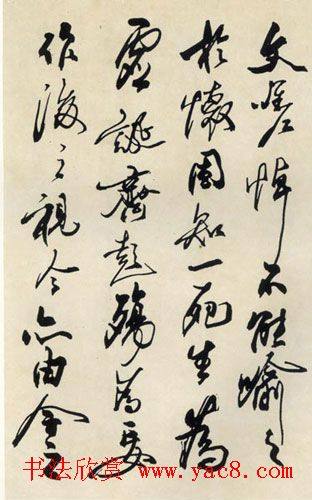 文嗟悼不能喻之
於懷固知一死生為
虛誕齊彭殤為妄
作後之視今亦由今之
书法欣赏 www.yac8.com